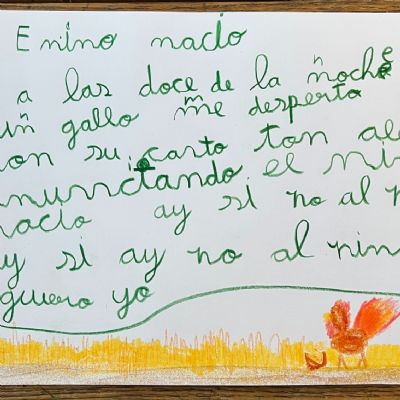 E nino nacio
a las doce de la noche
un gallo me desperta
on su canto ton ale
nunctando el ni
nacio ay si no al n
ay si ay no al nin
quiero yo